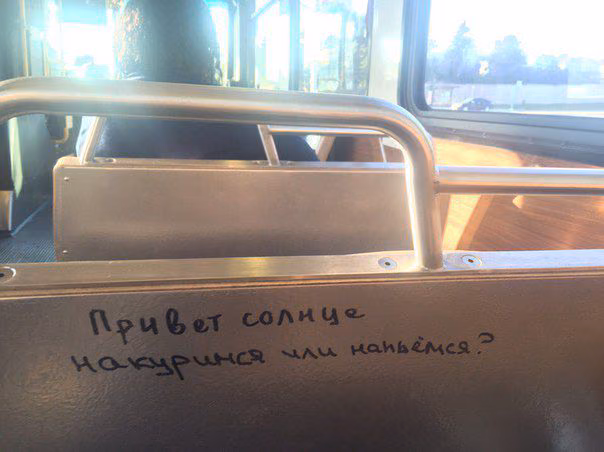 Привет солнце
накуримся или напьёмся?